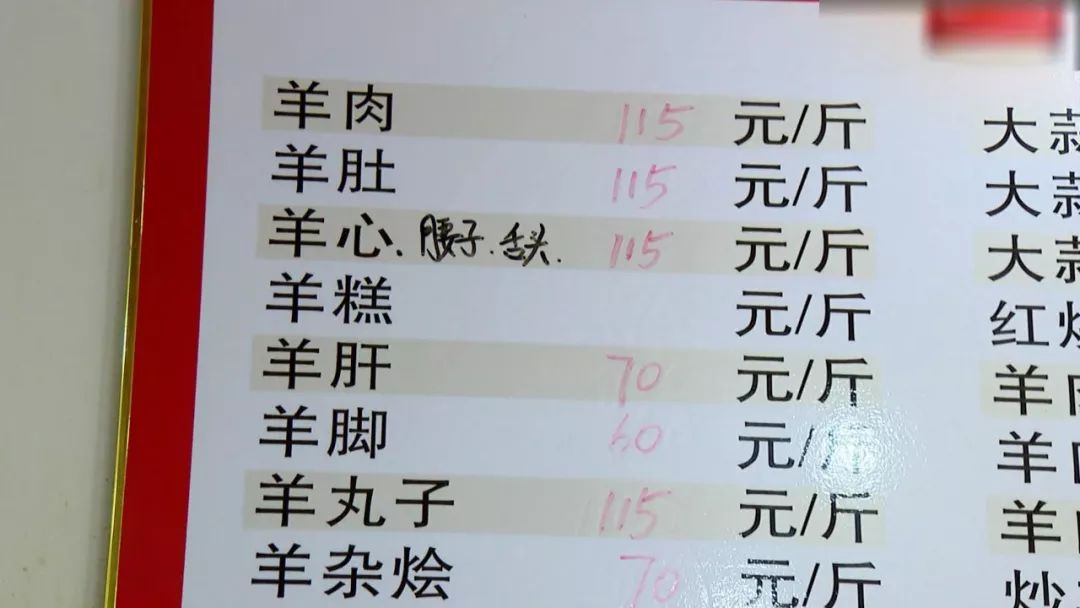 羊肉 115 元/斤 大蒜
羊肚 115 元/斤 大蒜
羊心、腰子.舌头. 115 元/斤 大蒜
羊糕 元/斤 红烧
羊肝 70 元/斤 羊肉
羊脚 60 元/斤 羊
羊丸子 115 元/斤 羊
羊杂烩 70 元/斤 炒